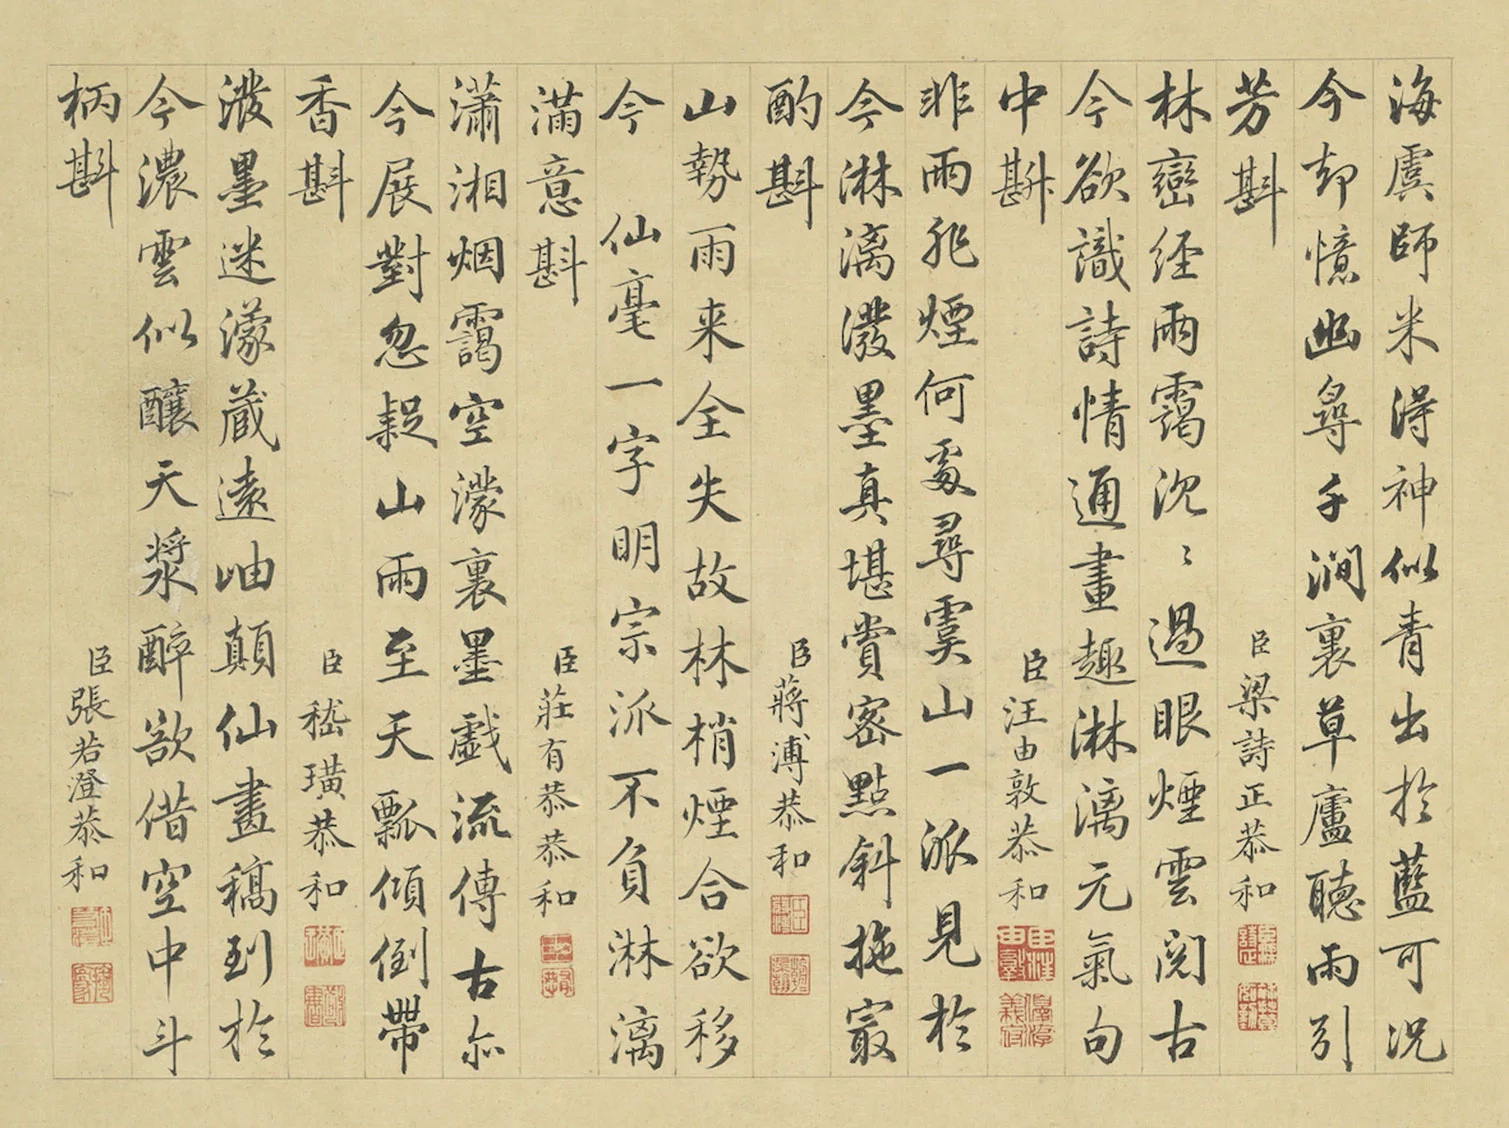 海虞師米得神似青出於藍可況
今却憶幽尋千澗裏草廬聽雨引
芳斟
臣梁詩正恭和
林巒經雨靄沉〻過眼煙雲閱古
今欲識詩情通畫趣淋漓元氣句
中斟
臣汪由敦恭和
非雨非煙何處尋虞山一派見於
今淋漓潑墨真堪賞密點斜拖寂
酌斟
臣蔣溥恭和
山勢雨来全失故林梢煙合欲移
今 仙毫一字明宗派不負淋漓
滿意斟
臣莊有恭恭和
瀟湘烟靄空濛裏墨戲流傳古亦
今展對忽疑山雨至天瓢傾倒帶
香斟
臣嵇璜恭和
潑墨迷濛蔵遠岫顛仙畫稿到於
今濃雲似釀天漿醉欲借空中斗
柄斟
臣張若澄恭和